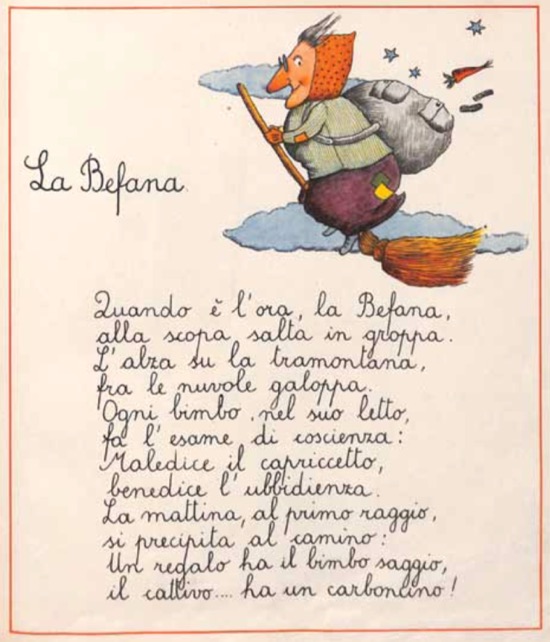 La Befana
Quando è l'ora, la Befana,
alla scopa salta in groppa.
L'alza su la tramontana,
fra le nuvole galoppa.
Ogni bimbo, nel suo letto,
fa l'esame di coscienza:
Maledice il capriccetto,
benedice l'ubbidienza.
La mattina, al primo raggio,
si precipita al camino:
Un regalo ha il bimbo saggio,
il cattivo.... ha un carboncino!